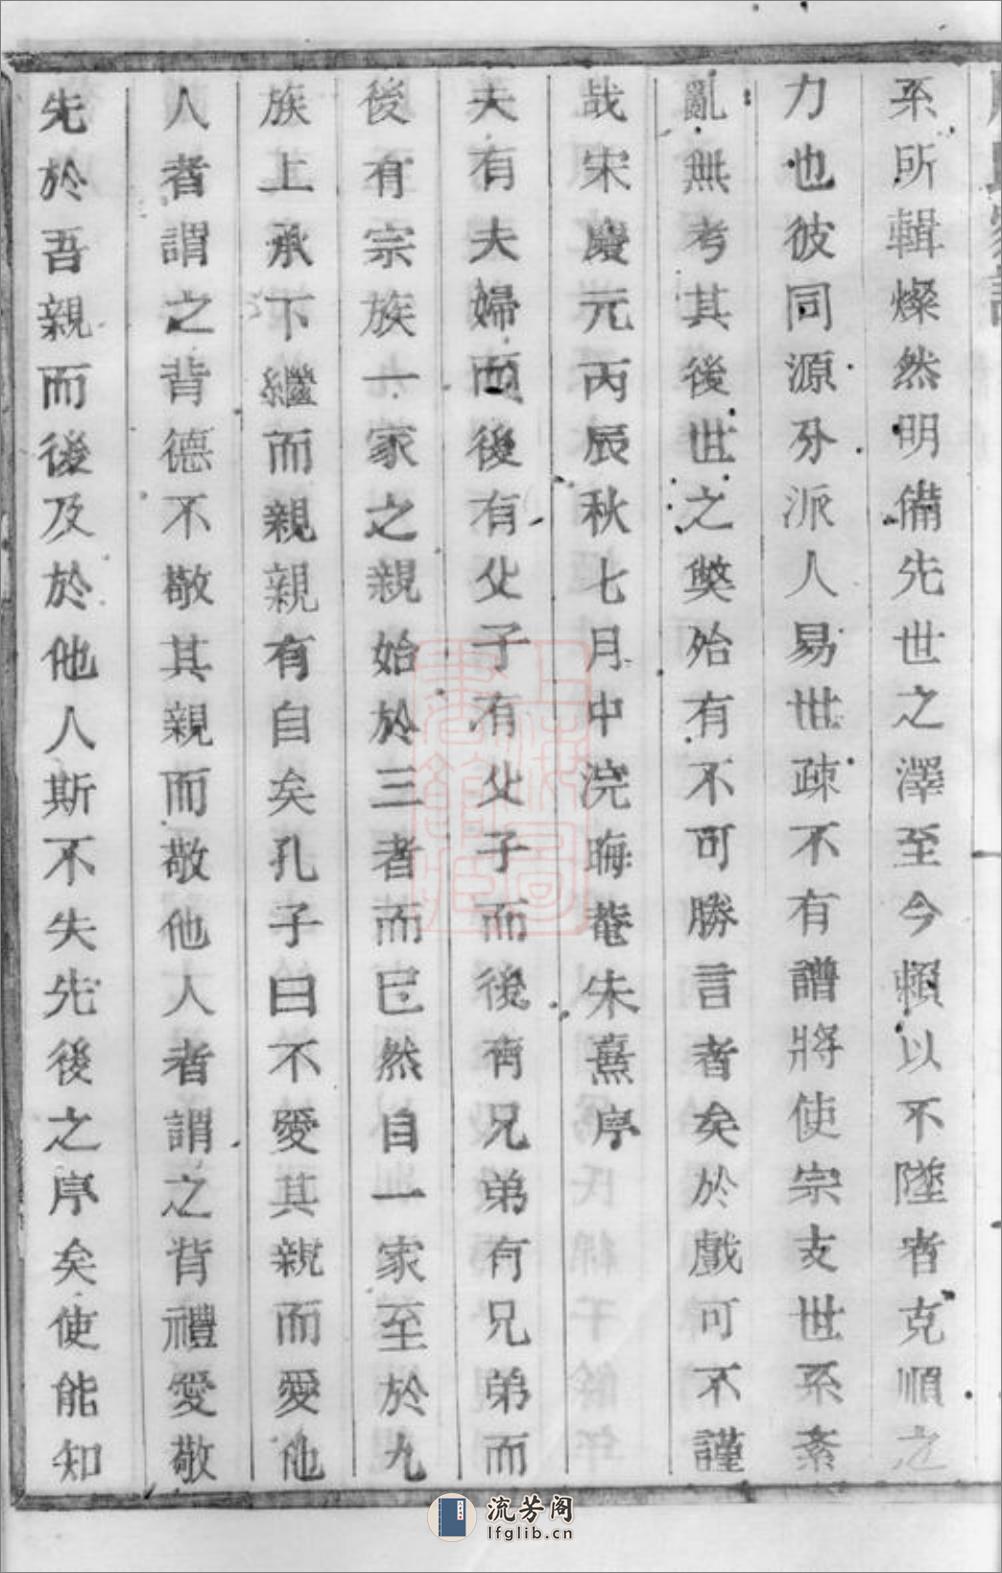 系所輯燦然明備先世之澤至今賴以不墜者克順之
力也彼同源分派人易世疎不有譜將使宗支世系紊
亂無考其後世之弊殆有不可勝言者矣於戲可不謹
哉宋慶元丙辰秋七月中浣晦菴朱熹序
夫有夫婦而後有父子有父子而後有兄弟有兄弟而
後有宗族一家之親始於三者而已然自一家至於九
族上承下繼而親親有自矣孔子曰不愛其親而愛他
人者謂之背德不敬其親而敬他人者謂之背禮愛敬
先於吾親而後及於他人斯不失先後之序矣使能知
流芳阁
lfglib.cn